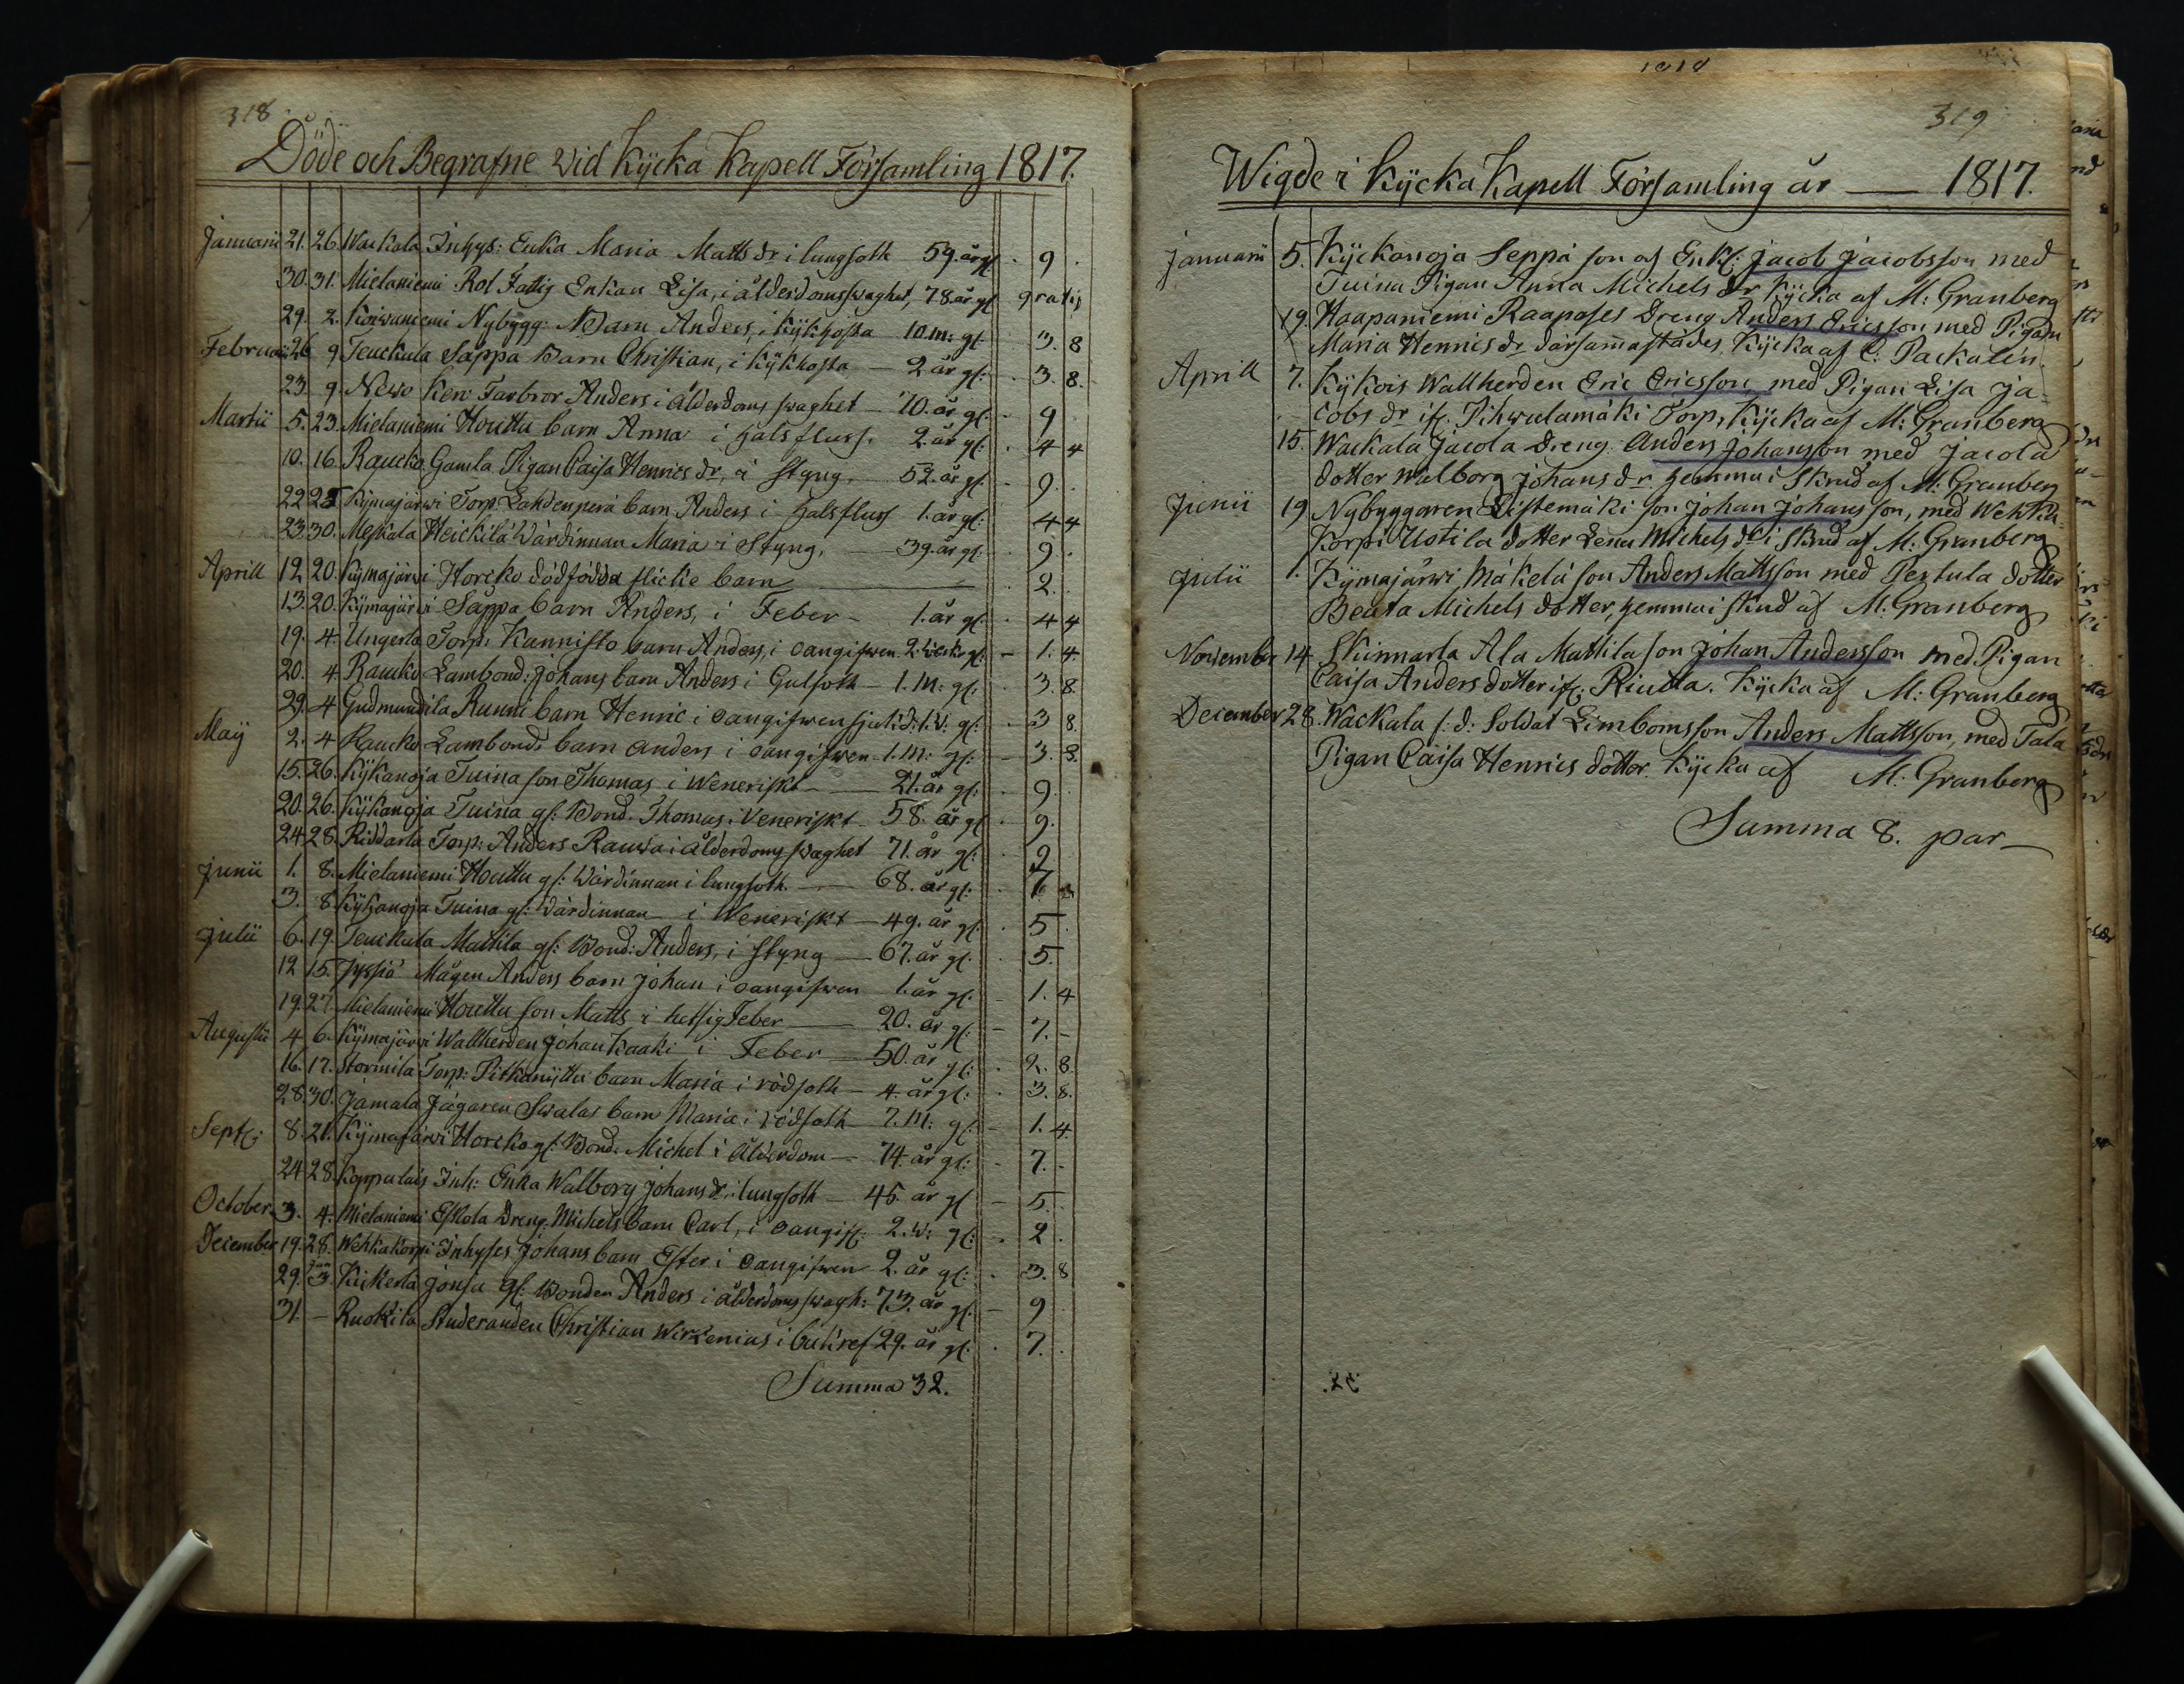 318
Döde och Begrafne vid Kycka Kapell Församling 1817.
Januarii 21. 26. Wackala Inhys: Enka Maria Matts dr i lungsoth 59. år gl. 9
30. 31. Mielaniemi Rot Fattig Enkan Lisa, i ålderdomsswaghet, 78. år gl gratis
29. 2. Koivuniemi Nybygg: Barn Anders, i Kykhosta 10. m: gl 3. 8
Februarii 26 9 Teuckula Sappa Barn Christian, i Kykhosta 2 år gl: 3. 8.
23 9. Newo Farbror Anders i ålderdoms swaghet 70. år gl. 9
Martii 5. 23. Mielaniemi Houttu barn Anna i halsfluss. 2. år gl. 4 4
10. 16. Raucko Gamla Pigan Caisa Henrics dr, i Styng, 52. år gl. 9.
22 25 Kymajärwi Torp: Lahdenperä barn Anders i halsfluss 1. år gl: 4 4
23. 30. Meskala Heickilä Wärdinnan Maria i Styng, 39. år gl: 9
Aprill 12 20. Kymajärwi Horcko dödfödda flicke barn 2.
13. 20. Kymajärwi Sappa barn Anders, i Feber 1. år gl 4 4
19. 4. Torp: Kannisto barn Anders, i oangifwen 2. weck. gl: 1. 4.
20. 4. Raucko Lambond: Johans barn Anders i Gulsoth 1. m: gl: 3. 8
29. 4 Gudmundila Runni barn Henric i oangifwen sjukd: 1. w: gl: 3 8.
Maij 2. 4 Raucko Lambonds barn Anders i oangifwen 1. m: gl: 3. 8.
15. 26. Kykanoja Tuina son Thomas i Weneriskt 21. år gl: 9
20. 26. Kykanoja Tuina gl: Bond. Thomas i Veneriskt 58. år gl 9.
24 28. Riddarla Torp: Anders Rauwa i ålderdoms swaghet 71. år gl: 9
Junii 1. 8. Mielaniemi Houttu gl: Wärdinnan i lungsoth 68. år gl: 7
3. 8. Kykanoja Tuina gl: Wärdinnan i Weneriskt 49. år gl: 5
Julii 6. 19. Teuckula Mattila gl: Bond: Anders, i styng 67. år gl. 5.
12 15. Jyssjö Mågen Anders barn Johan i oangifwen 1. år gl. 1. 4
19. 27. Mielaniemi Houttu son Matts i hetsig Feber 20. år gl: 7.
Augustii 4 6. Kymajärwi Wallherden Johan Kaaki i Feber 50. år gl: 2. 8.
16. 17. Stormila Torp: barn Maria i rödsoth 4. år gl: 3. 8.
28. 30. Jamala Jägaren Swalas barn Maria i rödsoth 7. m: gl: 1. 4.
Septf: 8. 21. Kymajärwi Horcko gl: Bond. Michel i ålderdom 74. år gl: 7.
24 28. Koppulais Inh: Enka Walborg Johans dr i lungsoth 45. år gl 5
October 3. 4. Mielaniemi Eskola Dreng Michels barn Carl, i oangif: 2. w: gl: 2
December 19. 28. Wehkakorpi Inhyses Johans barn Ester i oangifwen 2. år gl: 3. 8
29. Jan 3 Kuikerla Jonsa gl: Bonden Anders i ålderdoms swagh: 73. år gl. 9
31. – Ruokila Studeranden Christian Wirzenius i 29. år gl: 7.
Summa 32.
319
Wigde i Kycka Kapell Församling år — 1817.
Januarii 5. Kyckanoja Seppä son af Enkl: Jacob Jacobsson med
Tuina Pigan Anna Michels dr Kycka af M: Granberg
19. Haapaniemi Raaposes Dreng Anders Ericsson med Pigan
Maria Henrics dr därsammastädes, Kycka af C: Packalén
Aprill 7. Kykois Wallherden Eric Ericsson, med Pigan Lisa Ja-
cobs dr if: Pihwulamäki Torp, Kycka af M: Granberg
15. Wackala Jacola Dreng Anders Johansson med Jacola
dotter Walborg Johans dr hemma i Skrud af M: Granberg
Junii 19 Nybyggaren Listemäki son Johan Johansson, med Wehka-
korpi Ustila dotter Lena Michels dr i Skrud af M: Granberg
Julii 1. Kymajärwi Mäkelä son Anders Mattsson med Pertula dotter
Beata Michels dotter, hemma i Skrud af M. Granberg
November 14 Skinnarla Ala Mattila son Johan Andersson med Pigan
Caisa Anders dotter if: Riutta. Kycka af M: Granberg
December 28. Wackala f: d. Soldat Limbomsson Anders Mattsson, med Tala
Pigan Caisa Henrics dotter Kycka af M: Granberg
Summa 8. par